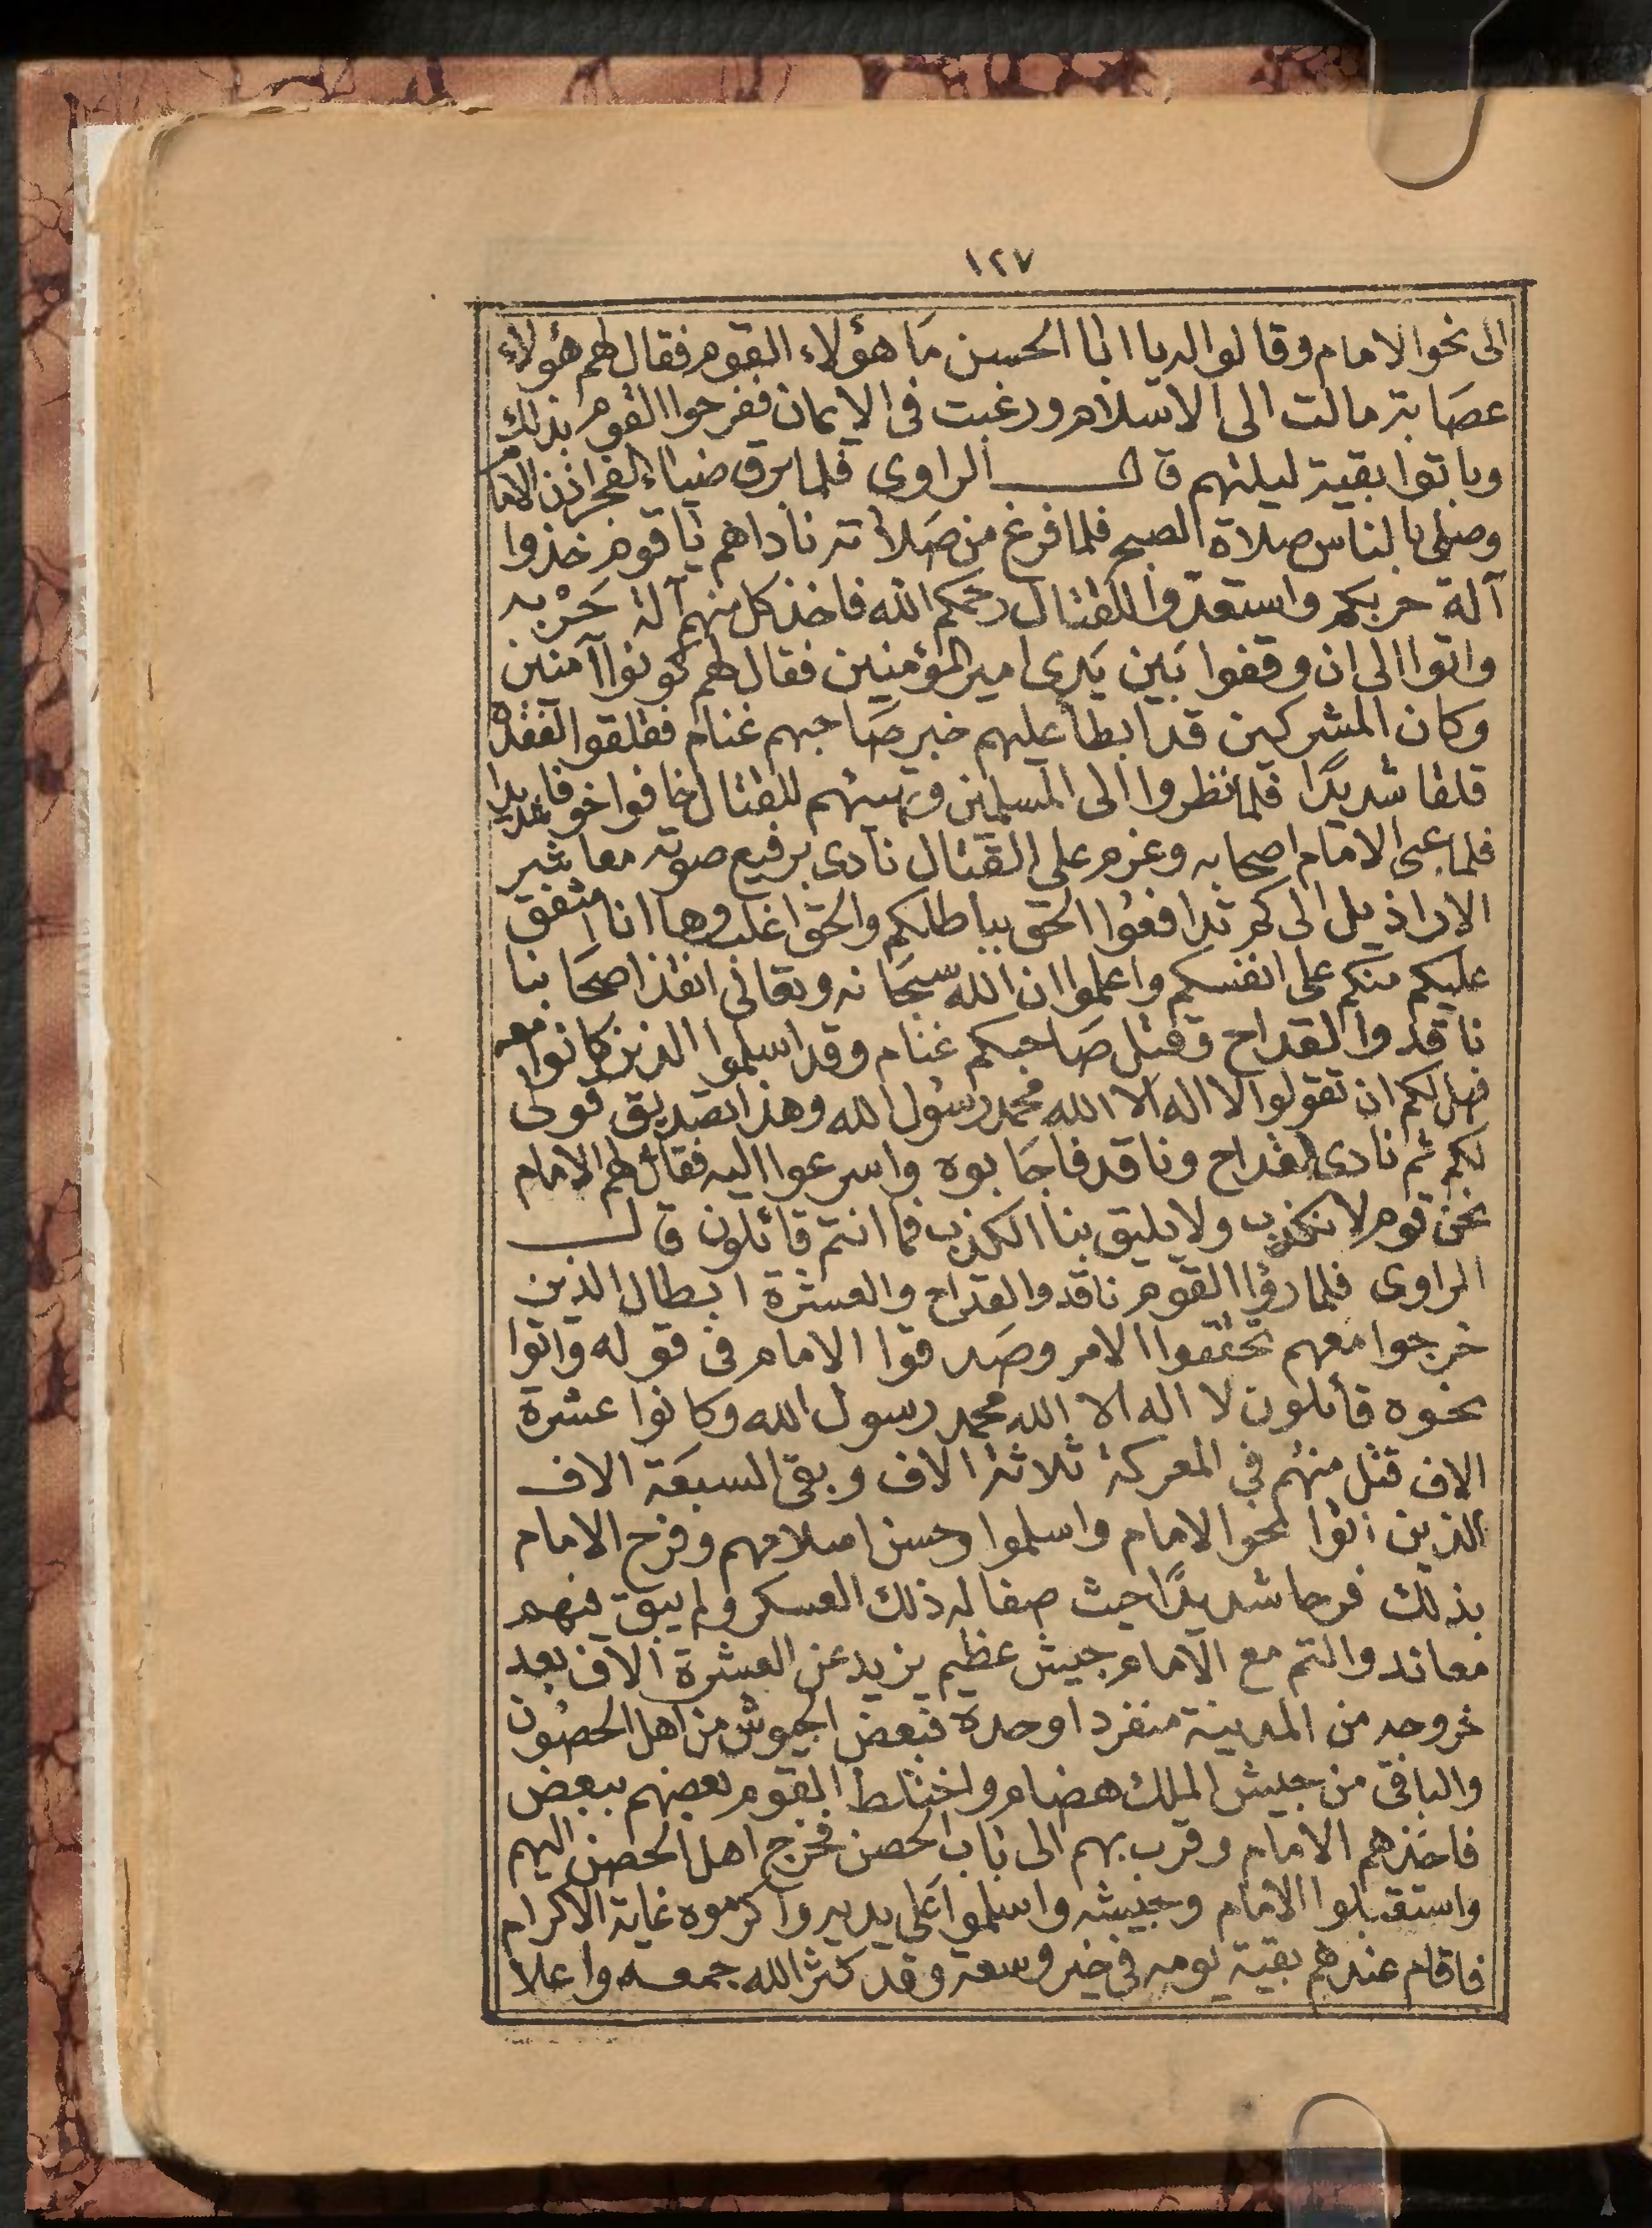 ١٢٧
الى نحوالامام وقالواله يا ابا الحسن مَا هؤلاء القوم فقال لهم هؤلاء
عصَابة مالت الى الاسلام ورغبت فى الايمان ففرحوا القوم بذلك
وباتوا بقية ليلتهم قال الراوى فلما برق ضياء الفجر اذن الامام
وصلى بالناس صلاة الصبح فلما فرغ من صَلاته ناداهم يا قوم خذوا
آلة حربكم واستعدوا للقتال رحمكم الله فاخذ كل منهم آلة حَرْبه
واتوا الى ان وقفوا بَين يَدى امير المؤمنين فقال لهم كونوا آمنين
وكان المشركين قد ابطأ عليهم خبر صَاحبهم غنام فقلقوا لفقده
قلقا شديدًا فلما نظروا الى المسلمين وتهيئهم للقتال خافوا خوفا شديدا
فلما عبى الامام اصحابه وعزم على القتال نادى برفيع صوته معاشر
الاراذيل الى كم تدافعوا الحق بباطلكم والحق اغلب وها انا اشفق
عليكم منكم على انفسكم واعلموا ان الله سبحَانه وتعالى انقذ اصحَابنا
ناقد والقداح وقتل صَاحبكم غنام وقد اسلموا الذين كانوا معه
فهل لكم ان تقولوا لا اله الا الله محمد رسُول الله وهذا تصديق قولى
لكم ثم نادى القداح وناقد فاجَابوه واسرعوا اليه فقال لهم الامام
نحن قوم لا نكذب ولا يليق بنا الكذب فما انتم قائلون قال
الراوى فلما رؤا القوم ناقد والقداح والعشرة ابطال الذين
خرجوا معهم تحققوا الامر وصَدقوا الامام فى قوله واتوا
نحوه قائلون لا اله الا الله محمد رسول الله وكانوا عشرة
الاف قتل منهم في المعركة ثلاثة الاف وبقى السبعَة الاف
الذين اتوا نحو الامام واسلموا وحسن اسلامهم وفرح الامام
بذلك فرحا شديدًا حيث صفا له ذلك العسكر ولم يبق فيهم
معاند والتم مع الامام جيش عظيم يزيد عن العشرة آلاف بعد
خروجه من المدينة منفردا وحدة فبعض الجيوش من اهل الحصُون
والباقى من جيش الملك هضام واختلط القوم بعضهم ببعض
فاخذهم الامام وقرب بهم الى باب الحصن فخرج اهل الحصن اليهم
واستقبلوا الامام وجيشه واسلموا على يديه واكرموه غاية الاكرام
فاقام عندهم بقية يومه فى خير وسعة وقد كثر الله جمعه واعلا